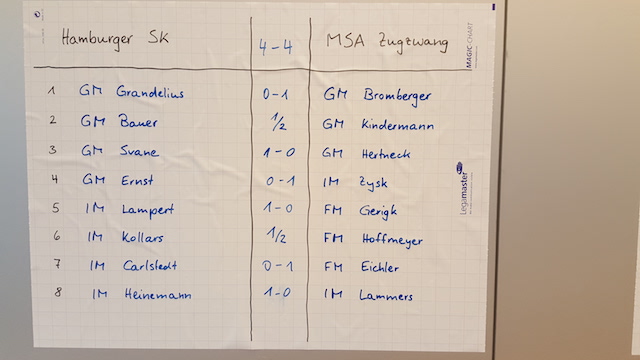 Hamburger SK 4-4 MSA Zugzwang
1 GM Grandelius 0-1 GM Bromberger
2 GM Bauer 1/2 GM Kindermann
3 GM Svane 1-0 GM Hertneck
4 GM Ernst 0-1 IM Zysk
5 IM Lampert 1-0 FM Gerigk
6 IM Kollars 1/2 FM Hoffmeyer
7 IM Carlstedt 0-1 FM Eichler
8 IM Heinemann 1-0 IM Lammers
MAGIC-CHART
Legamaster